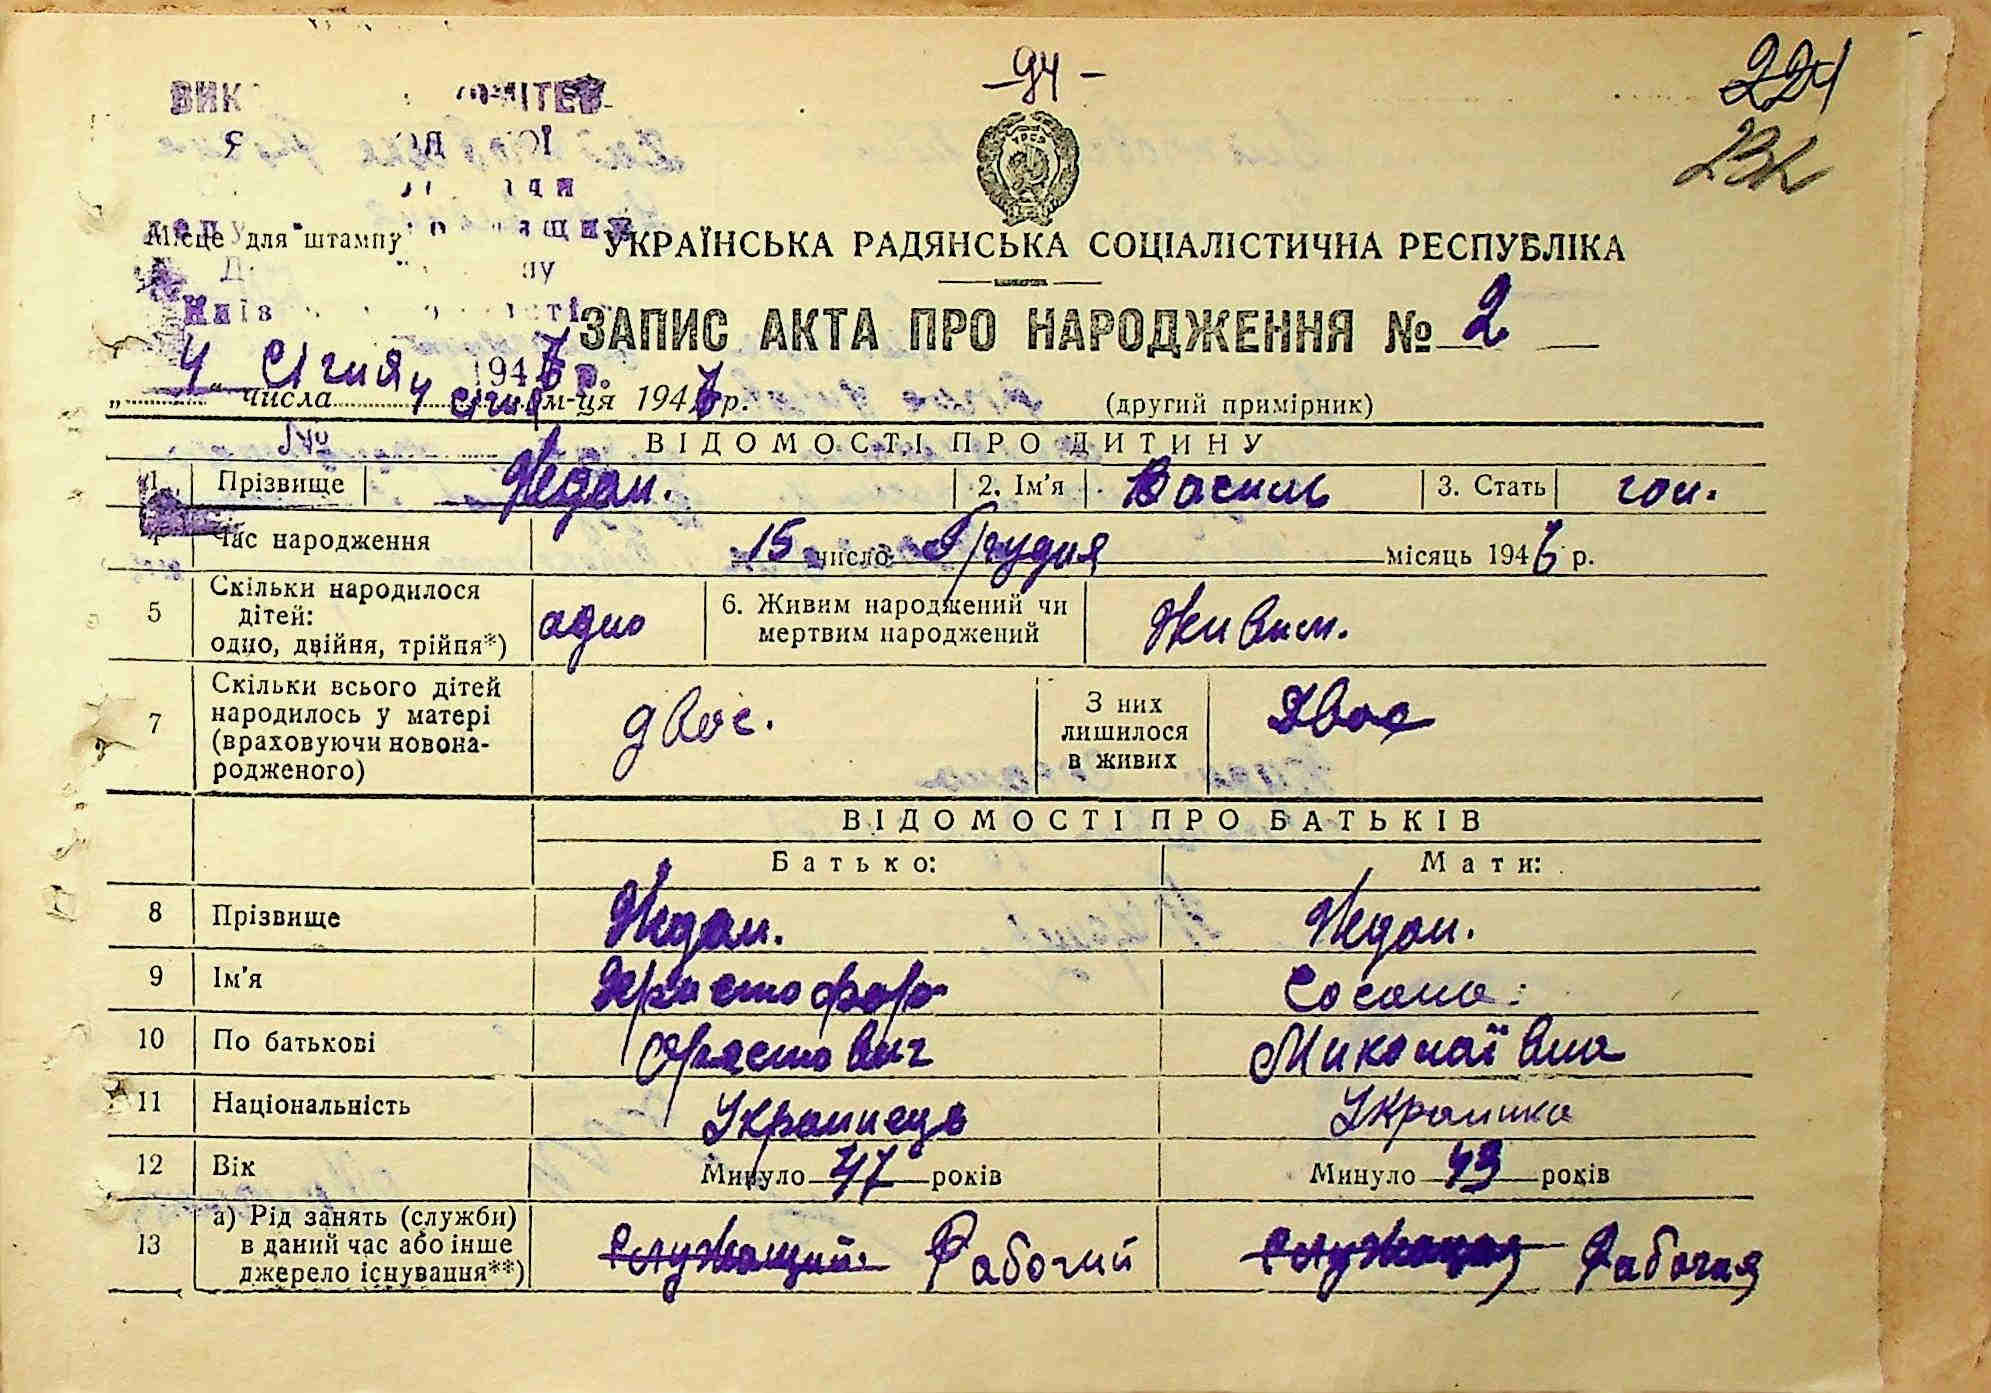 -94-
224
232
УРСР
Місце для штампу
УКРАЇНСЬКА РАДЯНСЬКА СОЦІАЛІСТИЧНА РЕСПУБЛІКА
ЗАПИС АКТА ПРО НАРОДЖЕННЯ № 2
4 січня 1947 р.
„ числа 4 січня м-ця 1947 р.
(другий примірник)
№
ВІДОМОСТІ ПРО ДИТИНУ
1 Прізвище Ждан. 2. Ім'я Василь 3. Стать чол.
4 Час народження 15 число Грудня місяць 1946 р.
5 Скільки народилося дітей: одно, двійня, трійня*) одно 6. Живим народжений чи мертвим народжений Живим.
7 Скільки всього дітей народилось у матері (враховуючи новонародженого) двоє. З них лишилося в живих Двоє
ВІДОМОСТІ ПРО БАТЬКІВ
Батько: Мати:
8 Прізвище Ждан. Ждан.
9 Ім'я Христофор Сосана.
10 По батькові Орестович Миколаївна
11 Національність Украинець Украинка
12 Вік Минуло 47 років Минуло 43 років
13 а) Рід занять (служби) в даний час або інше джерело існування**) Служащий Рабочий Служащая Рабочая